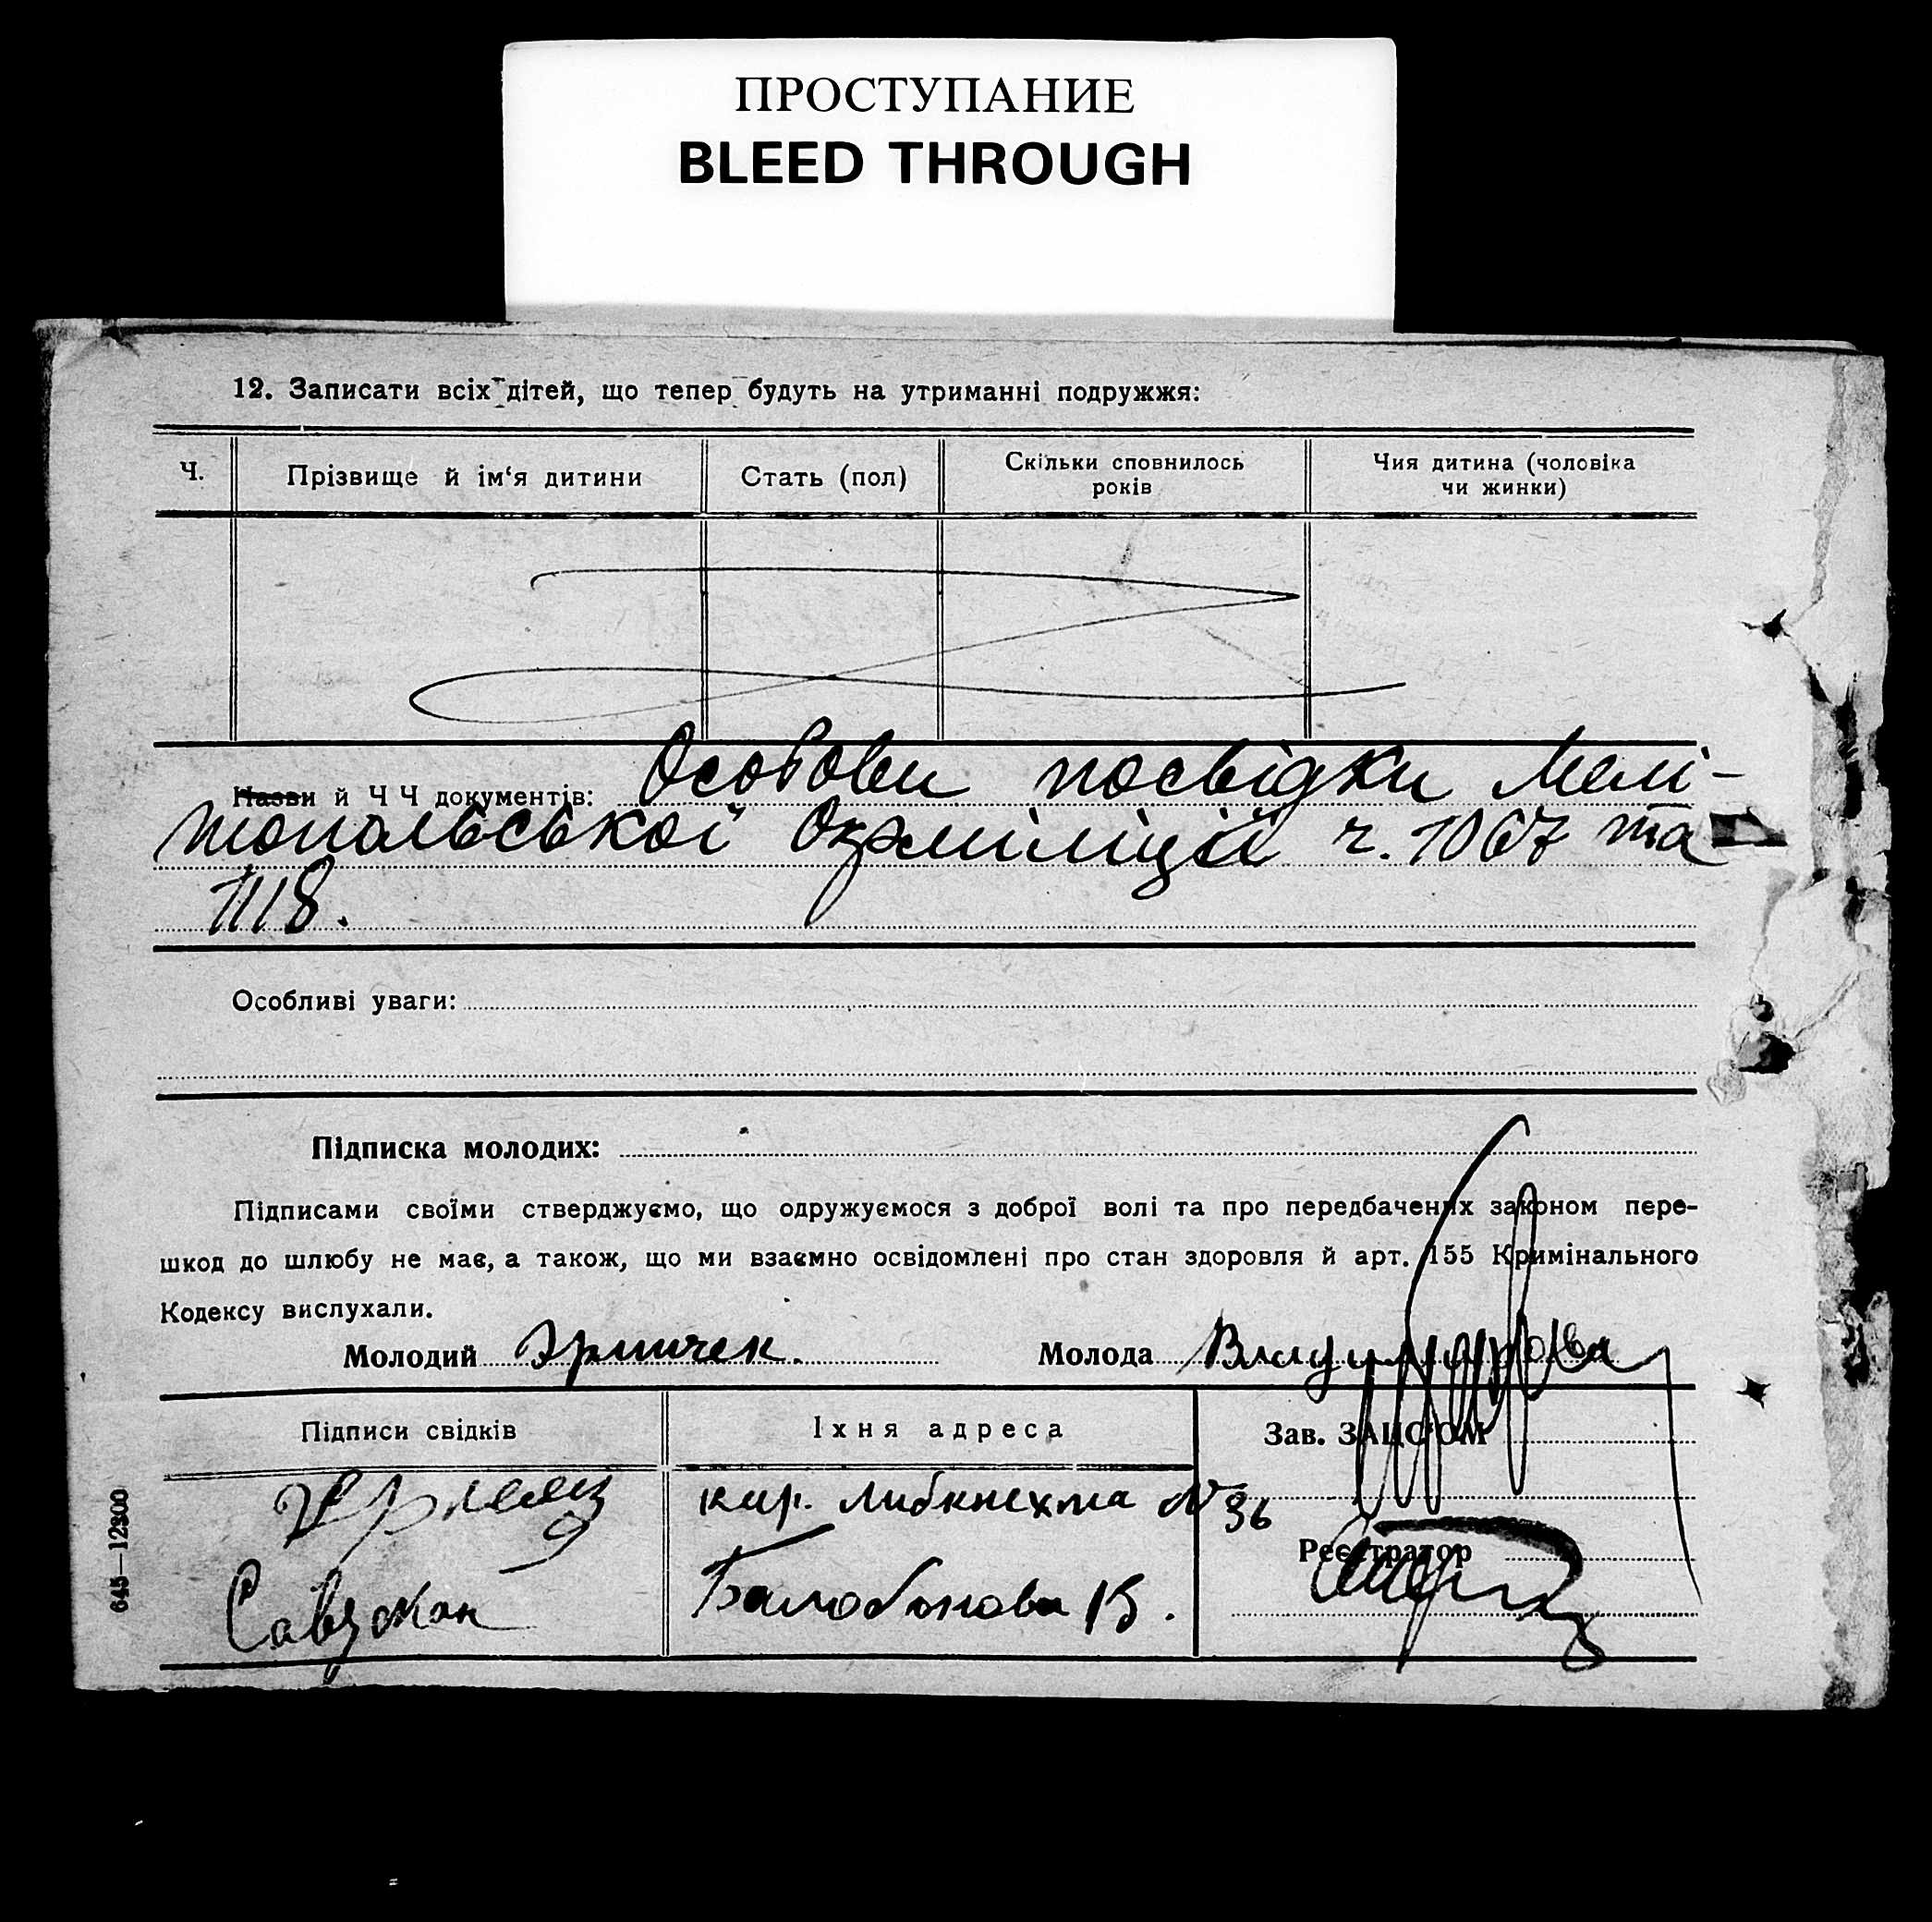 ПРОСТУПАНИЕ
BLEED THROUGH
12. Записати всіх дітей, що тепер будуть на утриманні подружжя:
Ч.
Прізвище й ім‘я дитини
Стать (пол)
Скільки сповнилось
років
Чия дитина (чоловіка
чи жинки)
Назви й Ч Ч документів: Особови посвідки Мелі-
топольської Окрміліції ч. 1067 та
1118.
Особливі уваги:
Підписка молодих:
Підписами своїми стверджуємо, що одружуємося з доброї волі та про передбачених законом пере-
шкод до шлюбу не має, а також, що ми взаємно освідомлені про стан здоровля й арт. 155 Кримінального
Кодексу вислухали.
Молодий
Молода
Підписи свідків
Їхня адреса
Зав. ЗАЦС‘ОМ
кар. Либкнехта № 36
Реєстратор
645—12300